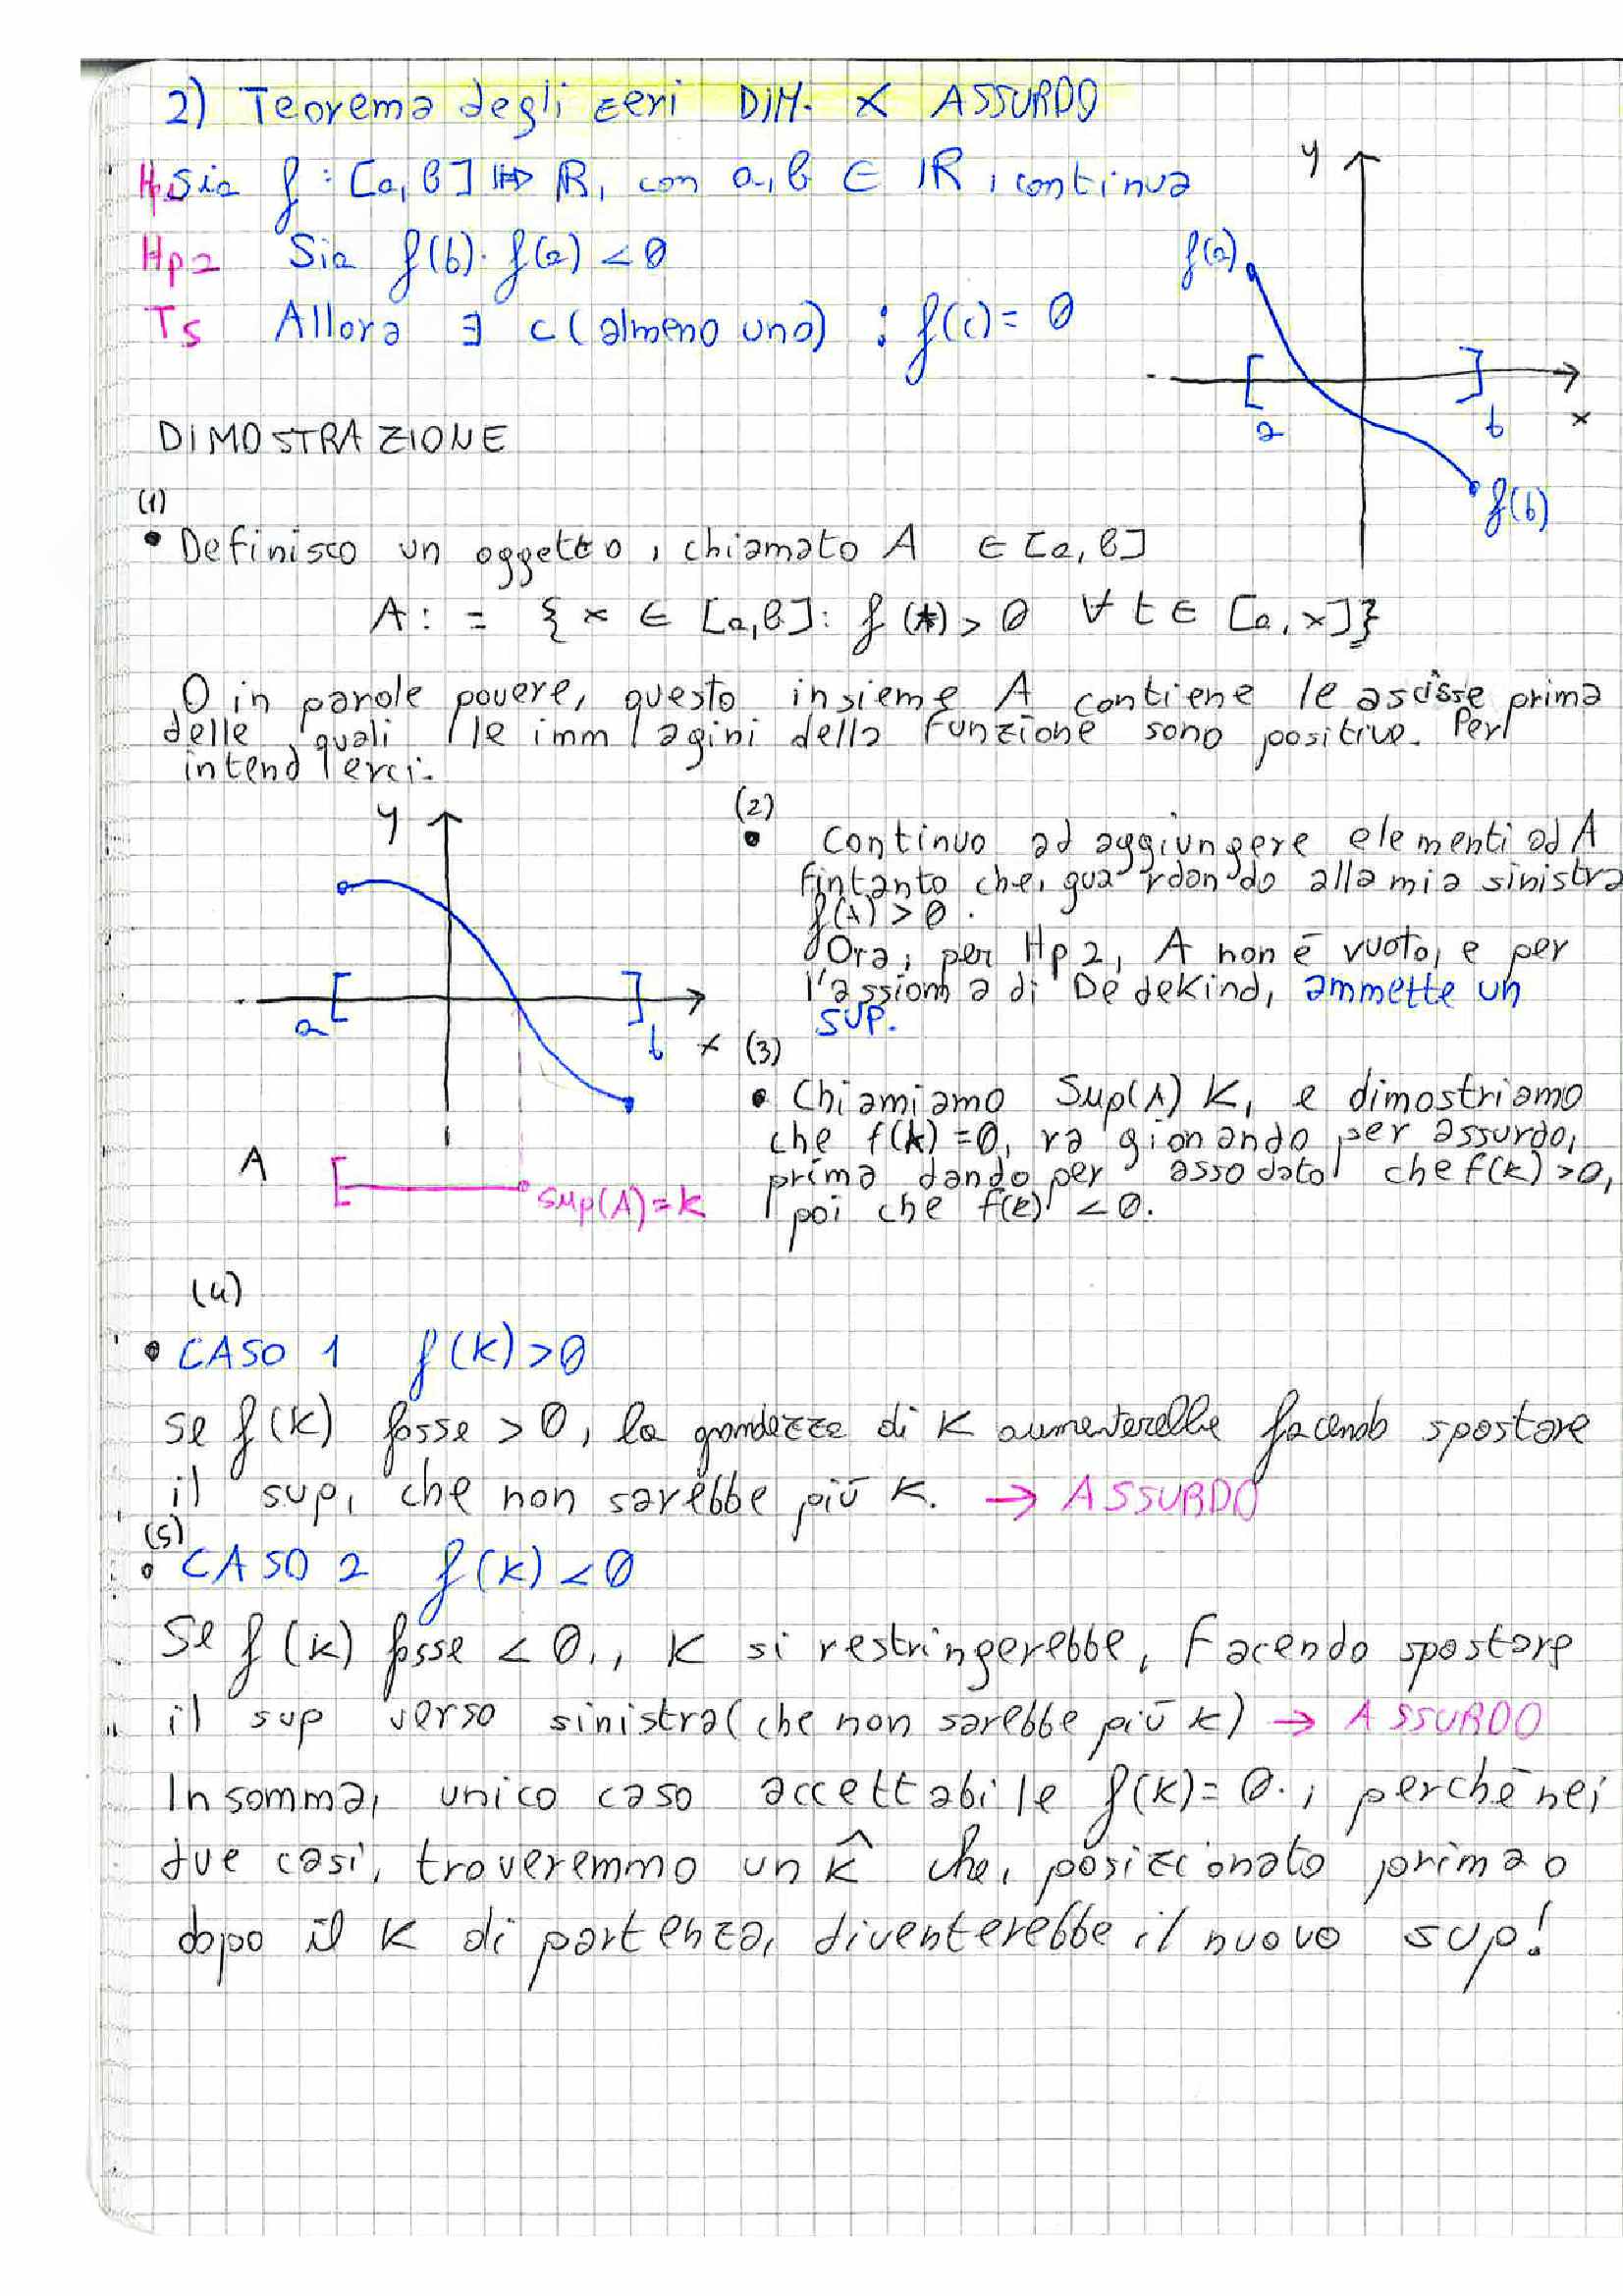 2) Teorema degli zeri DIM. X ASSURDO
Hp1 Sia f : [a, b] ↦ ℝ, con a, b ∈ ℝ, continua
Hp2 Sia f(b) · f(a) < 0
Ts Allora ∃ c (almeno uno) : f(c) = 0
y
f(a)
[ ]
a b x
f(b)
DIMOSTRAZIONE
(1)
• Definisco un oggetto, chiamato A ∈ [a, b]
A: = { x ∈ [a, b]: f(t) > 0 ∀ t ∈ [a, x]}
O in parole povere, questo insieme A contiene le ascisse prima
delle quali le immagini della funzione sono positive. Per
intenderci.
y
[ ]
a b x
A
[ sup(A) = k
(2)
• Continuo ad aggiungere elementi ad A
fintanto che, guardando alla mia sinistra
f(A) > 0.
Ora, per Hp2, A non è vuoto, e per
l'assioma di Dedekind, ammette un
SUP.
(3)
• Chiamiamo Sup(A) K, e dimostriamo
che f(k) = 0, ragionando per assurdo,
prima dando per assodato che f(k) > 0,
poi che f(k) < 0.
(4)
• CASO 1 f(k) > 0
Se f(k) fosse > 0, la grandezza di K aumenterebbe facendo spostare
il sup, che non sarebbe più K. → ASSURDO
(5)
• CASO 2 f(k) < 0
Se f(k) fosse < 0., K si restringerebbe, facendo spostare
il sup verso sinistra (che non sarebbe più k) → ASSURDO
Insomma, unico caso accettabile f(k) = 0., perchè nei
due casi, troveremmo un k̂ che, posizionato prima o
dopo il K di partenza, diventerebbe il nuovo sup!